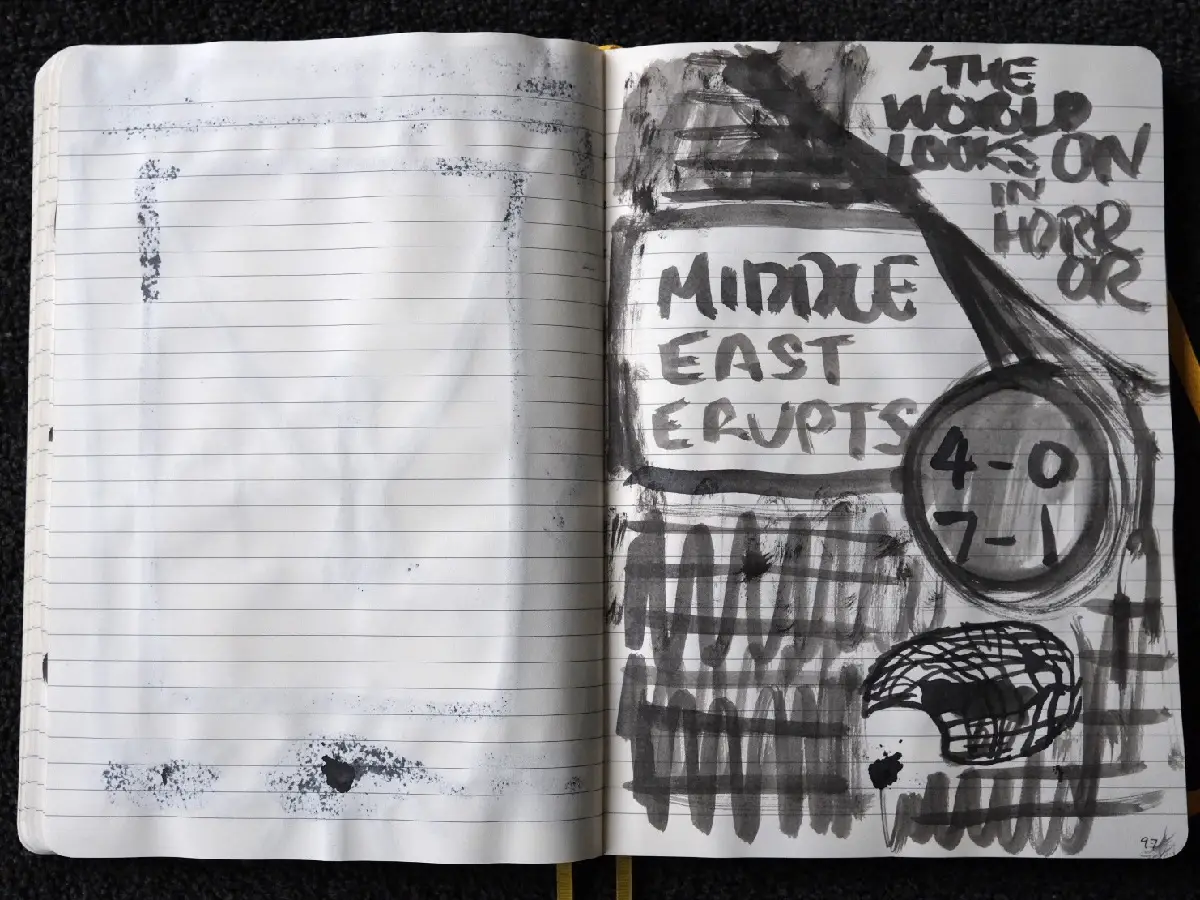 'THE
WORLD
LOOKS ON
IN
HORR
OR
MIDDLE
EAST
ERUPTS
4-0
7-1